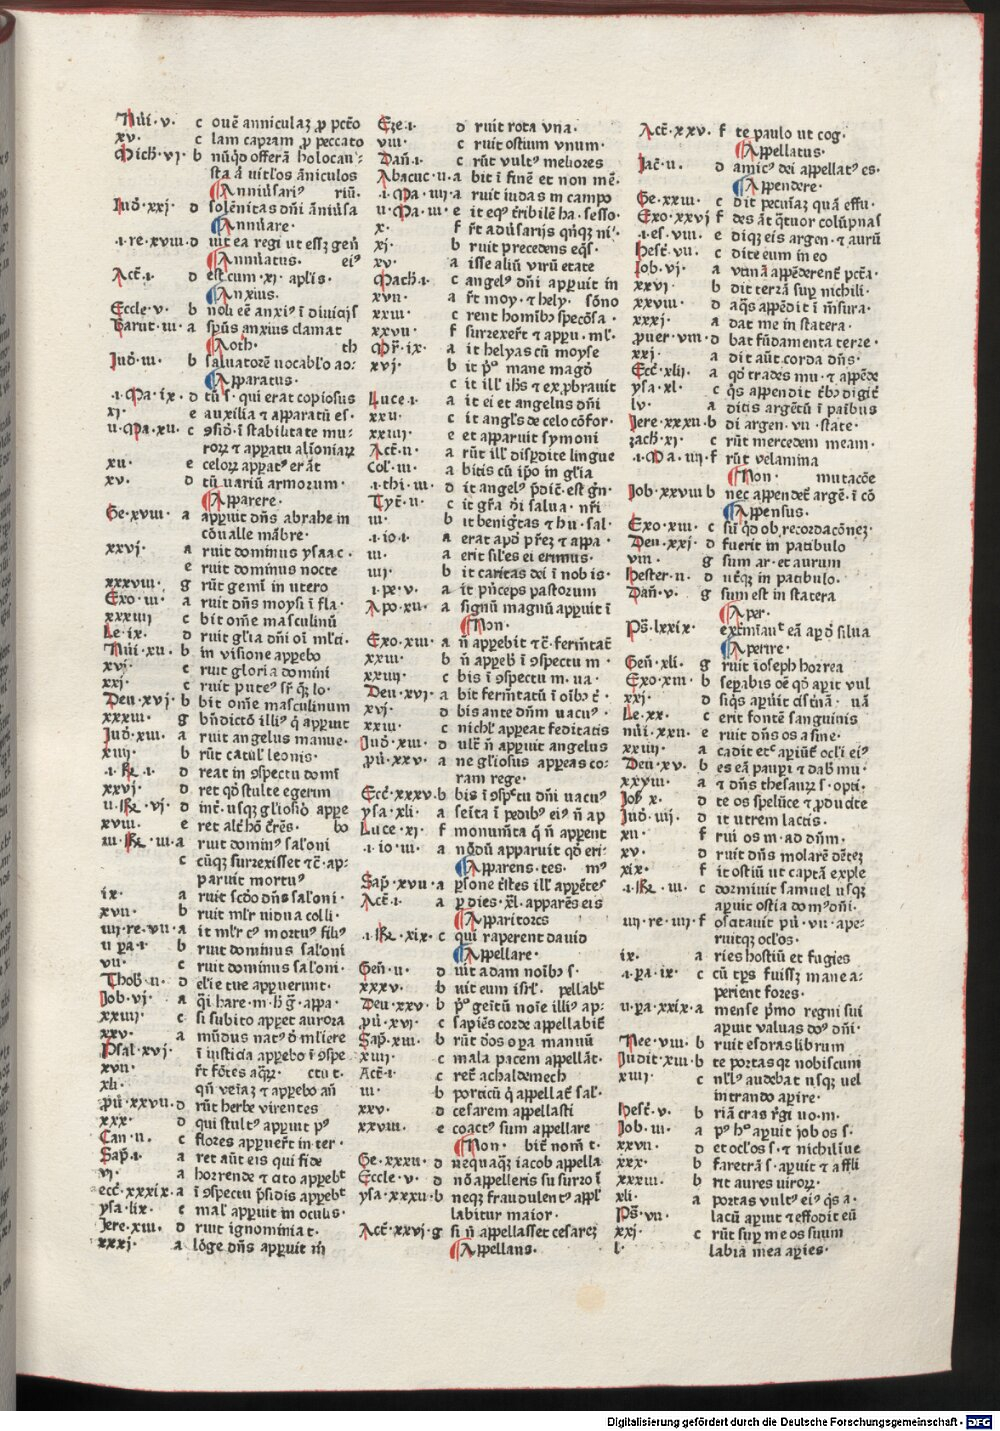 Nūi·v· c ouē anniculaʒ ꝓ pctō
xv· c lam capram ꝓ peccato
Mich·vj· b nūqd offerā holocau-
sta ā uitlos āniculos
Anniūsariꝰ riū·
Iud·xxj· d solēnitas dn̄i āniūsa
Annūare·
·i·re·xviii·d iut ea regi ut essʒ gen̄
Annūatus· eiꝰ
Act·i· d est cum·xj·apl̄is·
Anxius·
Eccle·v· b noli eē anxiꝰ ī diuiciis
Barut·iii·a sp̄us anxius clamat
Aoth· th
Iud·iii· b saluatorē uocablo ao-
Apparatus·
·i·Ma·ix·d tū s· qui erat copiosus
xj· e auxilia ⁊ apparatū eſ·
u·Ma·xu· c ꝯsid· ī stabilitate mu-
roꝝ ⁊ apꝑatu alioniaꝝ
xii· e celoꝝ apꝑatꝰ erāt
xv· d tū uariū armorum·
Apparere·
Ge·xviii· a apꝑuit dn̄s abrahe in
cōualle mābre·
xxvj· a ruit dominus ysaac·
e ruit dominus nocte
xxxviii· g rūt gemī in utero
Exo·iii· a ruit dn̄s moysi ī fla·
xxxiiij c bit omē masculinū
Le·ix· d ruit glia dn̄i oī ml̄ti·
Nūi·xu· b in visione apꝑebo
xvj· c ruit gloria domini
xxj· c ruit puteꝰ
Deu·xvj· b bit omē masculinum
xxxiii· g bn̄dictō illiꝰ q̄ apꝑuit
Iud·xiii· a ruit angelus manue·
xiiij· b rūt catul leonis·
·i·Re·i· d reat in ꝯspectu domī
xxvj· d ret qd stulte egerim
u·Re·vj· d int· usqʒ gliosiō appe
xviii· e ret alt hō c̄res· bo
iii·Re·iii·a ruit dominꝰ salōni
c cūqʒ surrexisset ⁊c̄·ap-
paruit mortuꝰ
ix· a ruit scdo dn̄s salōni·
xvii· b ruit ml̄r uidua colli·
iiij·re·vii·a it ml̄r cꝰ mortuꝰ filiꝰ
u·pa·i· b ruit dominus salōni
vii· c ruit dominus salōni·
Thob·ii· d elie tue apꝑuerunt·
Iob·vj· a
xxiiij· c si subito apꝑet aurora
xxv· a mūdus natꝰ d mliere
Psal·xvj· ī iusticia apꝑebo ī ꝯspe
xvii· r̄t fōtes aqꝝ· ctu t·
xli· qn̄ veīaʒ ⁊ apꝑebo an̄
ꝓu·xxvii·d rūt herbe virentes
xxx· d qui stultꝰ apꝑuit pꝰ
Can·ii· c flores apꝑuerūt in ter·
Sap·i· a ret aūt eis qui fide
vj· a horrende ⁊ cito apꝑebt
ecc·xxxix·a ī ꝯspectu p̄sidis apꝑebt
ysa·lix· c mal apꝑuit in oculis·
Iere·xiii· d ruit ignominia t·
xxxj· a lōge dn̄s apꝑuit
Eze·i· d ruit rota vna·
viii· c ruit ostium vnum·
Dan·i· c rūt vultꝰ meliores
Abacuc·ii·a bit ī finē et non mē·
·i·Ma·iiij·a ruit iudas in campo
u·Ma·iii·e it eqꝰ tribile hn̄·sesso·
x· f r̄t adūsariis qn̄qʒ ni·
xj· b ruit precedens eqſ·
xv· a isse aliū virū etate
Math·i· c angelꝰ dn̄i apꝑuit in
xvii· a r̄t moy·⁊ hely· sōno
xxiii· c rent homībꝰ specōsa·
xxvii· f surrexert ⁊ appu·ml·
Mr·ix· a it helyas cū moyse
xvj· b it pꝰ mane mago
c it ill ihs ⁊ exprbrauit
Luce·i· a it ei et angelus dn̄i
xxii· c it angls de celo cōfor·
xxiiij· e et apparuit symoni
Act·ii· a rūt ill disꝑdite lingue
Col·iii· a bitis cū ipo in glia
·i·thi·iii· d it angelꝰ p̄dic·est gn·
Tyt·ii· c it gra di salua·nri
iii· b it benigtas ⁊ hu·sal·
·i·io·i· a erat apd prēʒ ⁊ appa·
iii· a erit siles ei erimus·
iiij· b it caritas dei ī nobis·
·i·pe·v· a it p̄nceps pastorum
Apo·xii· a signū magnū apꝑuit ī
Non·
Exo·xiii· a n̄ apꝑebit ⁊c̄·fermtat
xxiii· b n̄ apꝑeb ī ꝯspectu m·
xxiiij· c bis ī ꝯspectu m·ua·
Deu·xvj· a bit fermtatū ī oibꝰ t·
xvj· d bis ante dn̄m uacuꝰ·
xxiii· c nichl appareat feditatis
Iud·xiii· d ulr n̄ apꝑuit angelus
ꝓu·xxv· a ne gliosus appeas co-
ram rege·
Ecc·xxxv·b bis ī ꝯspctu dn̄i uacuꝰ
ysa·xli· a seīta ī pedibꝰ eiꝰ n̄ ap
Luce·xj· f monumta q̄ n̄ apꝑent
·i·io·iii· a nōdū apparuit qd eri-
Apparens·tes· mꝰ
Sap·xvii·a ꝑsone tstes ill appētes
Act·i· a ꝑ dies·xl·apparēs eis
Apparitores
·i·Re·xix·c qui raperent dauid
Appellare·
Gen·ii· d uit adam noībꝰ s·
xxxv· b uit eum isrl· pellabt
Deu·xxv· b pꝰ geitū noīe illiꝰ ap-
ꝓu·xvj· c sapiēs corde appellabit
Sap·xiii· b rūt dos opa manuū
xiiij· c mala pacem appellāt·
Act·i· c ret achaldemech
iii· b porticū q̄ appellat sal·
xxv· d cesarem appellasti
xxviii· e coactꝰ sum appellare
Non· bit nom t·
Ge·xxxii· d nequaqʒ iacob appella
Eccle·v· d nō appelleris susurro ī
ysa·xxxii·b neqʒ fraudulentꝰ appl
labitur maior·
Act·xxvj·g si n̄ appellasset cesareʒ
Appellans·
Act·xxv· f te paulo ut cog·
Appellatus·
Iac·ii· d amicꝰ dei appellatꝰ es·
Appendere·
Ge·xxiii· c dit pecuniaʒ quā effu·
Exo·xxvj f des āt qtuor colūpnas
·i·es·viii· e diqʒ eis argen·⁊ aurū
Hest·vii· c dite eum in eo
Iob·vj· a vtinā appēderent pctā·
xxvj· b dit terrā suꝑ nichili·
xxviii· d aqs appēdit ī mēsura·
xxxj· a dat me in statera·
ꝓuer·viii·d bat fūdamenta terre·
xxj· a dit aūt corda dn̄s·
Ecc·xlij· a qd trades nu·⁊ appēde
ysa·xl· c qs appendit tbꝰ digit
lv· a ditis argētū ī paibus
Iere·xxxii·b di argen·vii·state·
zach·xj· c rūt mercedem meam·
·i·Ma·iiij·f rūt velamina
Non· mutacōe
Iob·xxviii b nec appendet argē·ī cō
Appensus·
Exo·xiii· c sū qd ob recordacōneʒ·
Deu·xxj· d fuerit in patibulo
viii· g sum ar·et aurum
Hester·ii· d utqʒ in patibulo·
Dan·v· g sum est in statera
Aper·
Ps·lxxix· extmīaut eā apd silua
Aperire·
Gen·xli· g ruit ioseph horrea
Exo·xiii· b seꝑabis oē qd aꝑit vul
xxj· d siqs aꝑuit cistnā· uā
Le·xx· c erit fontē sanguinis
nūi·xxii· e ruit dn̄s os asine·
xxiiij· a cadit etc aꝑiūt ocli eiꝰ
Deu·xv· b es eā pauꝑi ⁊ dab mu·
xxviii· a ⁊ dn̄s thesauꝝ s·opti·
Iob x· d te os spelūce ⁊ ꝓducite
Iud·iiij· d it utrem lactis·
xii· f rui os m·ad dn̄m·
xv· d ruit dn̄s molarē dēteʒ
xix· f it ostiū ut captā exple
·i·Re·iii· c dormiuit samuel usqʒ
aꝑuit ostia domꝰ dn̄i·
iiij·re·iiij·f oscitauit pu·vii·ape-
ruitqʒ oclos·
ix· a ries hostiū et fugies
·i·pa·ix· c cū tꝑs fuissʒ mane a-
perient fores·
u·pa·xxix·a mense pmo regni sui
aꝑuit valuas domꝰ dn̄i·
Nee·viii·b ruit esdras librum
Iudit·xiii·b te portas qʒ nobiscum
xiiij· c nl̄lꝰ audebat usqʒ uel
intrando aꝑire·
Hest·v· b riā cras rgi uo·m·
Iob·iii· a pꝰ hꝰ aꝑuit iob os s·
xxvii· d et oclos s·⁊ nichil īue
xxx· b faretrā s·aꝑuit ⁊ affli
xxxiii· b rit aures uiroꝝ·
xli· a portas vultꝰ eiꝰ qs a·
Ps·vii· lacū aꝑuit ⁊ effodit eū
xxj· c rūt suꝑ me os suum
l· labia mea aꝑies·
Digitalisierung gefördert durch die Deutsche Forschungsgemeinschaft - DFG